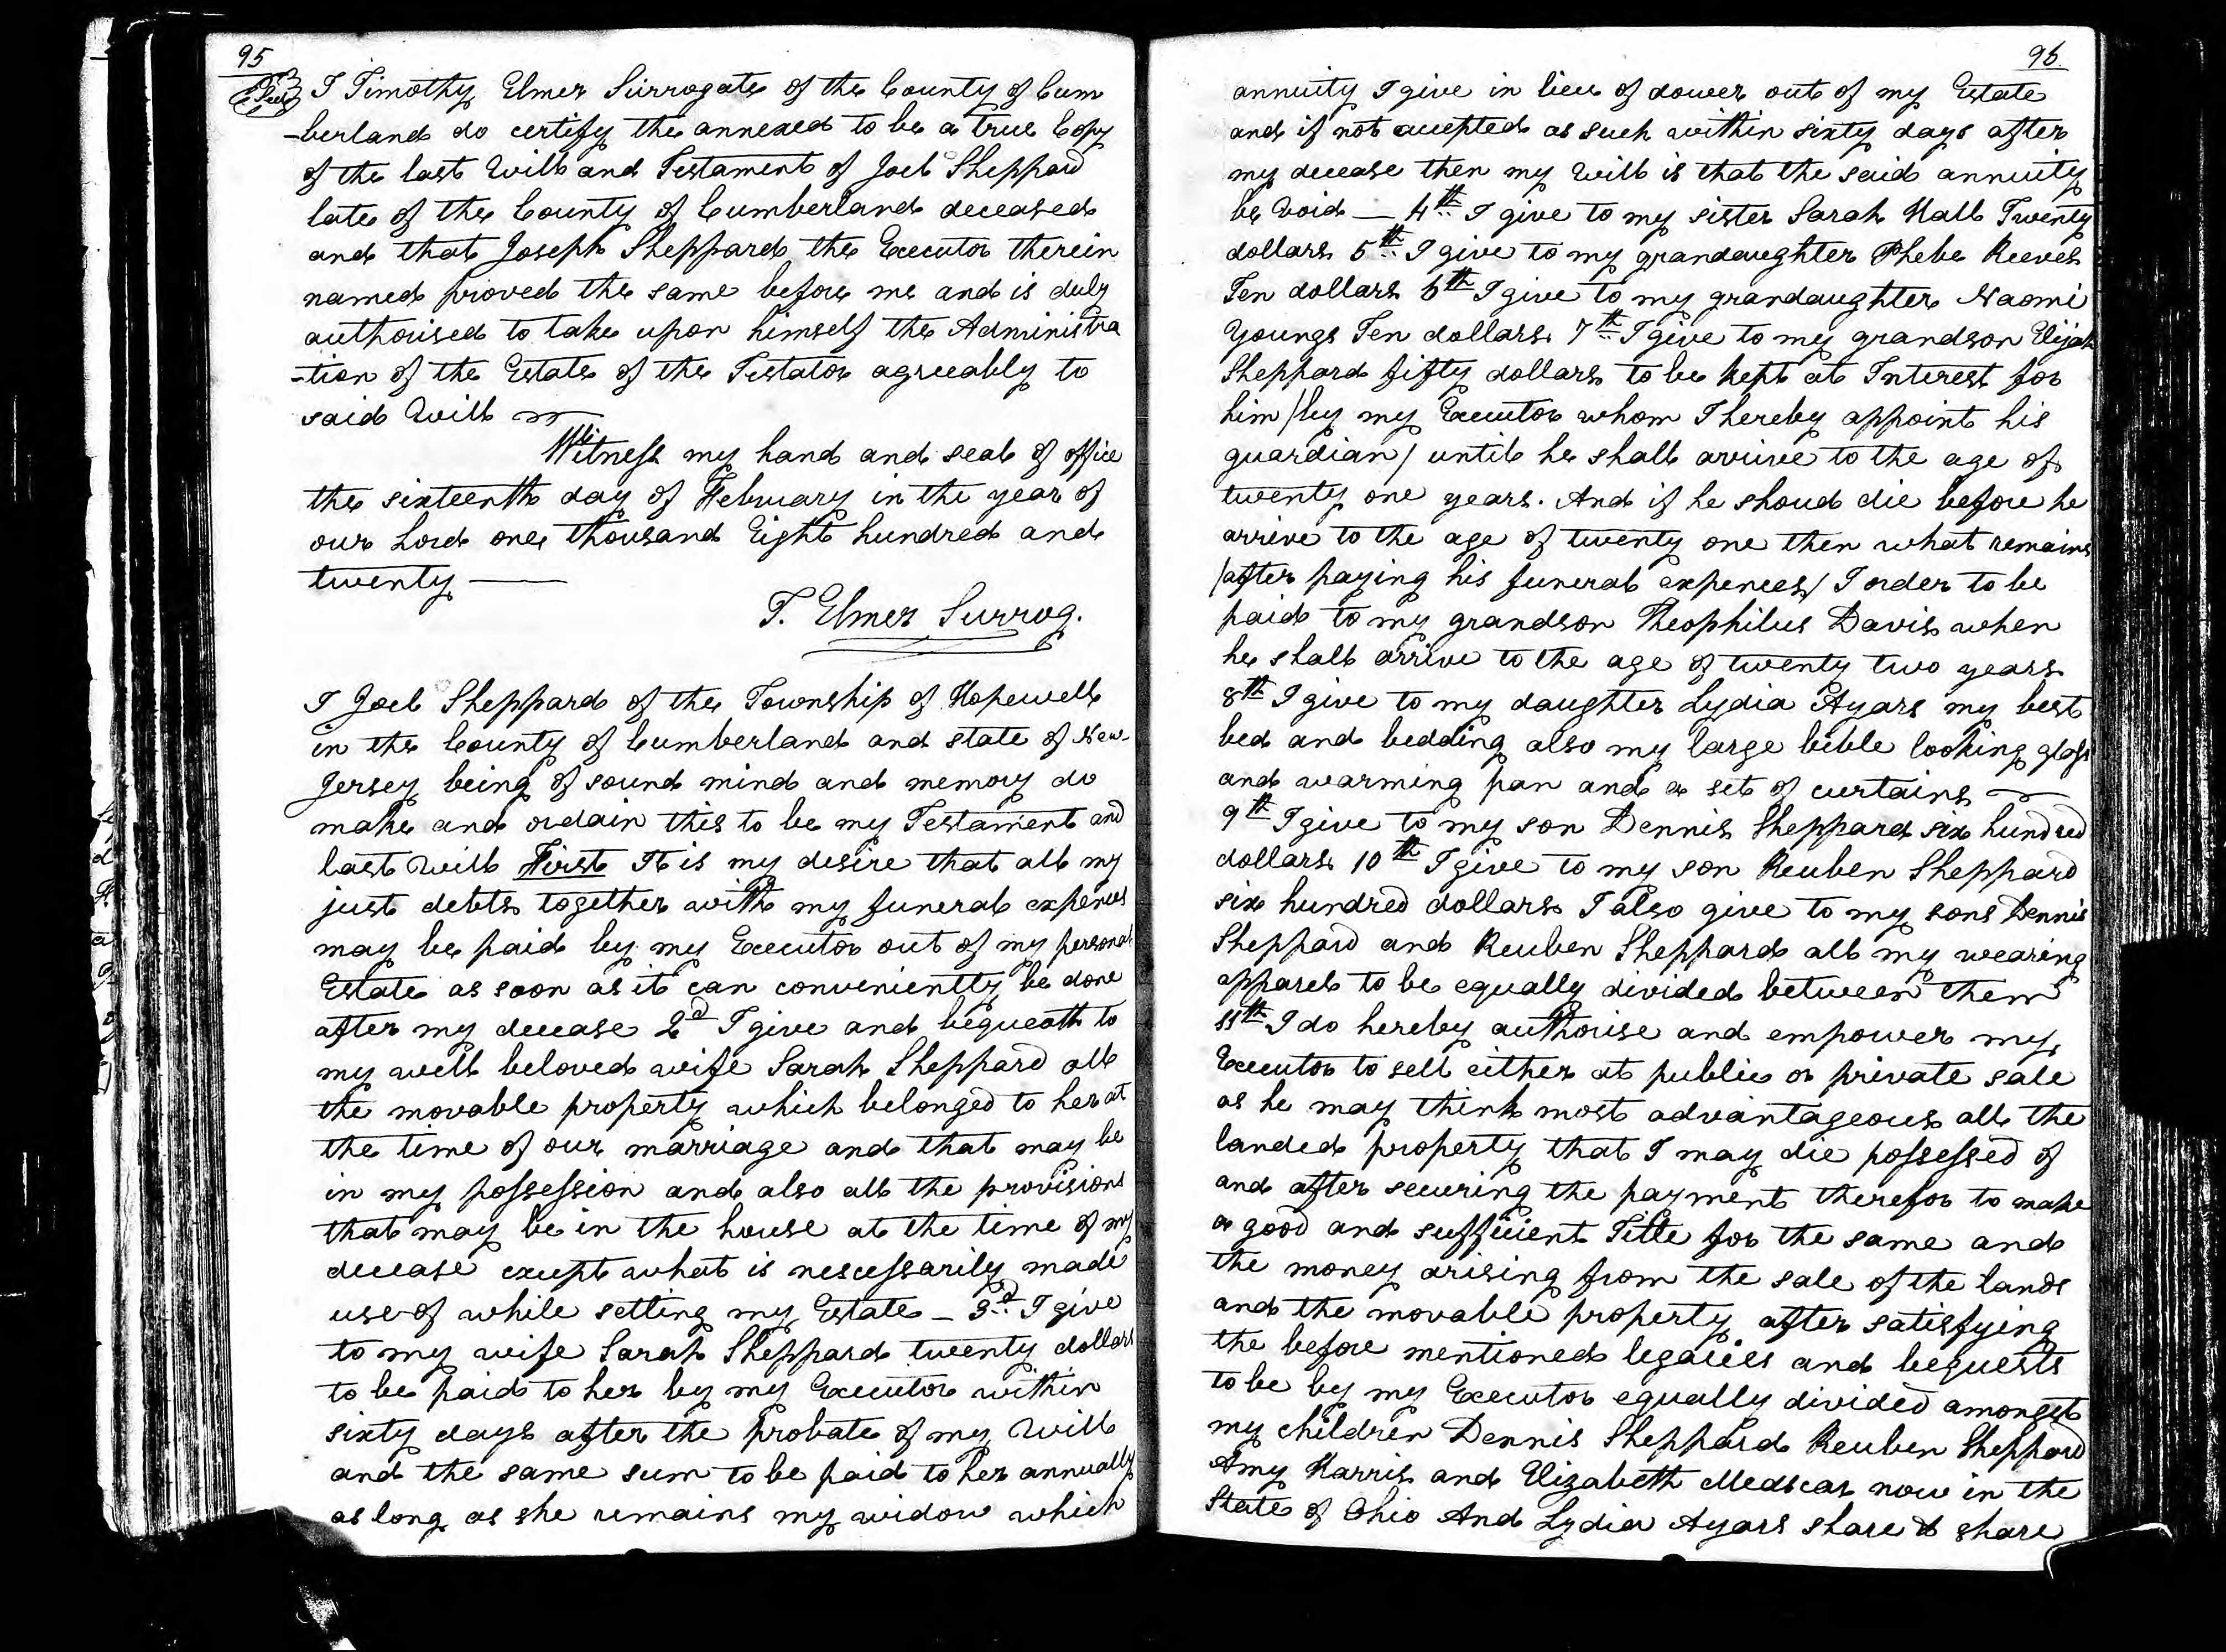 95
I Timothy Elmer Surrogate of the County of Cum
-berland do certify the annexed to be a true Copy
of the last Will and Testament of Joel Sheppard
late of the County of Cumberland deceased
and that Joseph Sheppard the Executor therein
named proved the same before me and is duly
authorised to take upon himself the Administra
-tion of the Estate of the Testator agreeably to
said Will
Witness my hand and seal of office
the sixteenth day of February in the year of
our Lord one thousand Eight hundred and
twenty —
T. Elmer Surrog.
I Joel Sheppard of the Township of Hopewell
in the County of Cumberland and state of New-
Jersey being of sound mind and memory do
make and ordain this to be my Testament and
last Will First It is my desire that all my
just debts together with my funeral expences
may be paid by my Executor out of my personal
Estate as soon as it can conveniently be done
after my decease 2d I give and bequeath to
my well beloved wife Sarah Sheppard all
the movable property which belonged to her at
the time of our marriage and that may be
in my possession and also all the provisions
that may be in the house at the time of my
decease except what is nescessarily made
use of while setling my Estate — 3d I give
to my wife Sarah Sheppard twenty dollars
to be paid to her by my Executor within
sixty days after the probate of my Will
and the same sum to be paid to her annually
as long as she remains my widow which
96.
annuity I give in lieu of dower out of my Estate
and if not accepted as such within sixty days after
my decease then my Will is that the said annuity
be Void — 4th I give to my sister Sarah Hall Twenty
dollars 5th I give to my grandaughter Phebe Reeves
Ten dollars 6th I give to my grandaughter Naomi
Youngs Ten dollars 7th I give to my grandson Elijah
Sheppard fifty dollars to be kept at Interest for
him /by my Executor whom I hereby appoint his
guardian/ until he shall arrive to the age of
twenty one years. And if he shoud die before he
arrive to the age of twenty one then what remains
/after paying his funeral expences/ I order to be
paid to my grandson Theophilus Davis when
he shall arrive to the age of twenty two years
8th I give to my daughter Lydia Ayars my best
bed and bedding also my large bible looking glass
and warming pan and a set of curtains
9th I give to my son Dennis Sheppard six hundred
dollars 10th I give to my son Reuben Sheppard
six hundred dollars I also give to my sons Dennis
Sheppard and Reuben Sheppard all my wearing
apparel to be equally divided between them
11th I do hereby authorise and empower my
Executor to sell either at public or private sale
as he may think most advantageous all the
landed property that I may die possessed of
and after securing the payment therefor to make
a good and sufficient Title for the same and
the money arising from the sale of the lands
and the movable property after satisfying
the before mentioned legacies and bequests
to be by my Executor equally divided amongst
my children Dennis Sheppard Reuben Sheppard
Amy Harris and Elizabeth Medscar now in the
State of Ohio And Lydia Ayars share & share